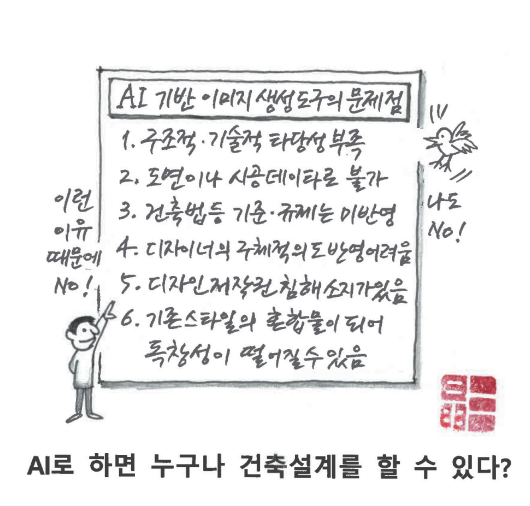 AI 기반 이미지 생성도구의 문제점
1. 구조적·기술적 타당성 부족
2. 도면이나 시공데이타로 불가
3. 건축법등 기준·규제는 미반영
4. 디자이너의 구체적의도반영어려움
5. 디자인저작권 침해소지가있음
6. 기존스타일의 혼합물이 되어
독창성이 떨어질수있음
이런
이유
때문에
NO!
나도
No!
AI로 하면 누구나 건축설계를 할 수 있다?